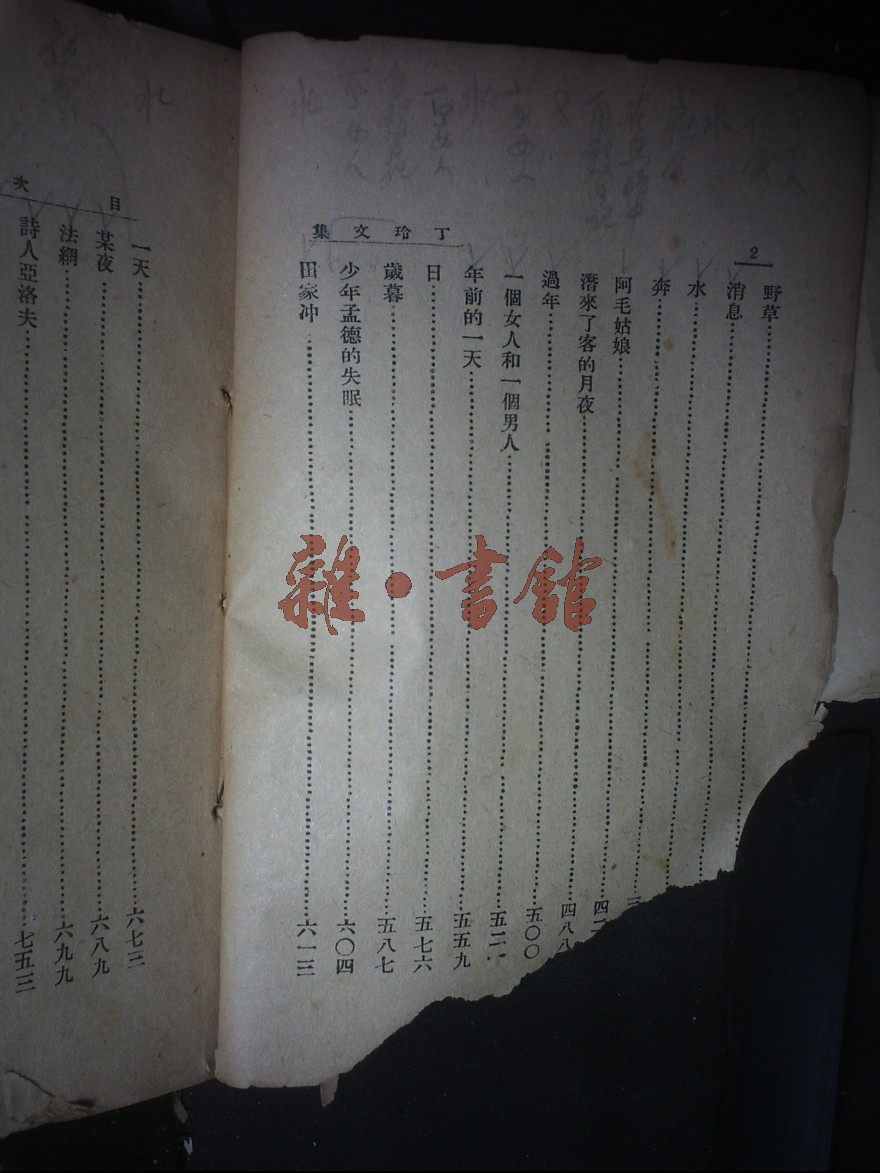 2
丁玲文集
野草
消息
水
奔 三
阿毛姑娘 四二
潛來了客的月夜 四八八
過年 五〇〇
一個女人和一個男人 五二
年前的一天 五五九
日 五七六
歲暮 五八七
少年孟德的失眠 六〇四
田家冲 六一三
目次
一天 六七三
某夜 六八九
法網 六九九
詩人亞洛夫 七五三
雜·書館